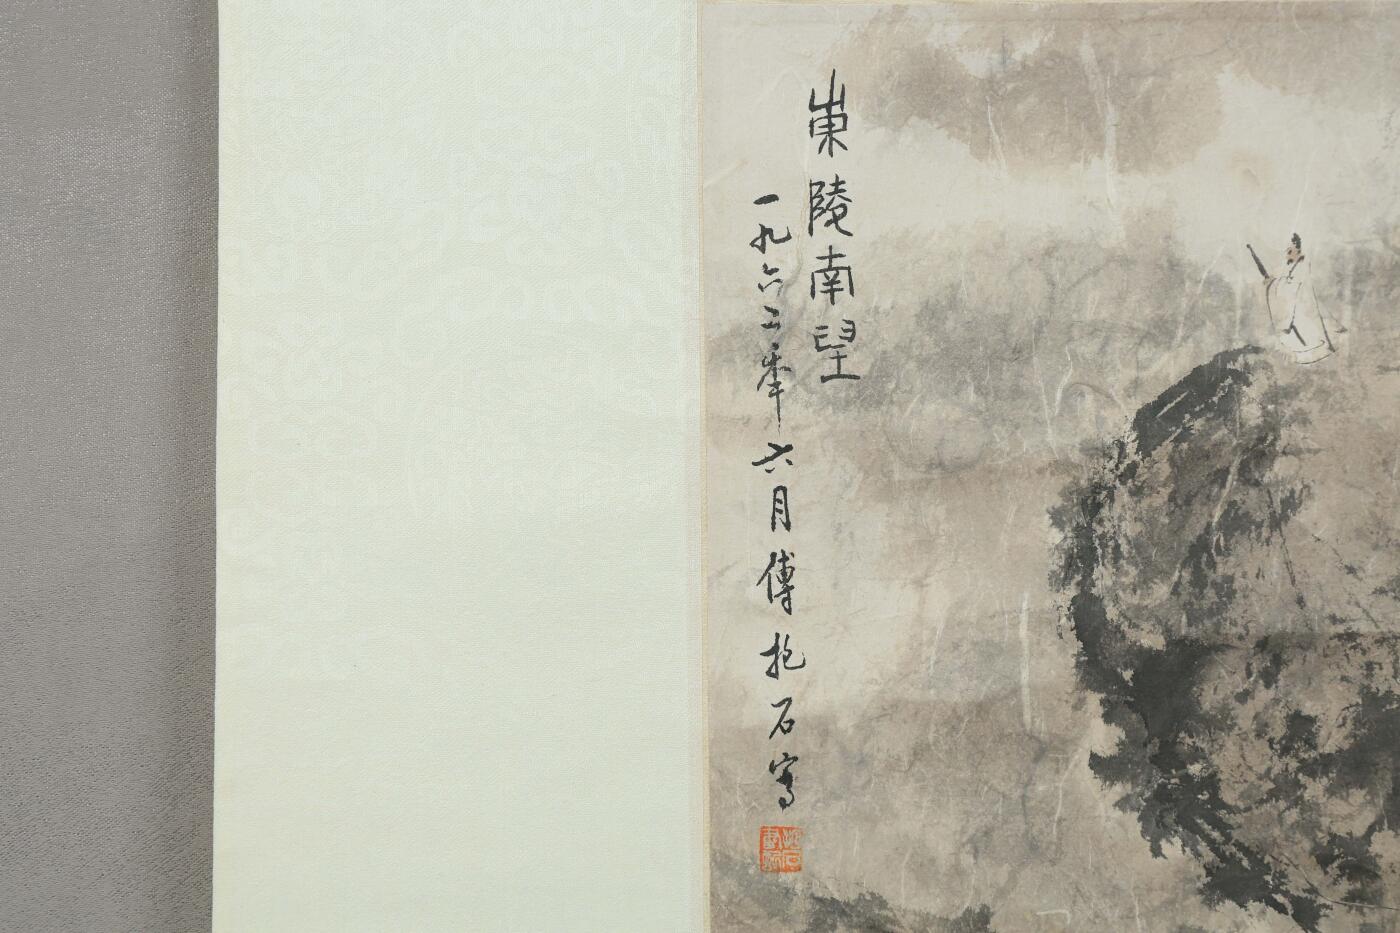 崬陵南望
一九六二秊六月傅抱石寫